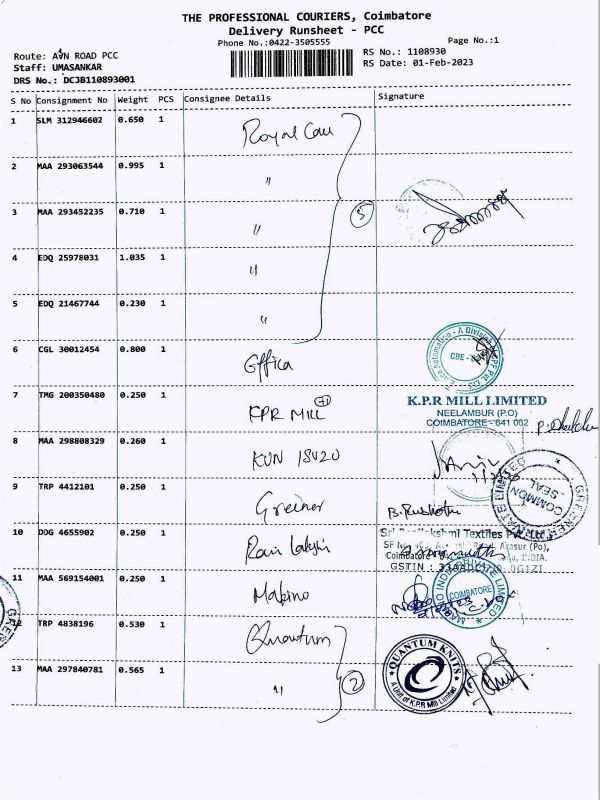 THE PROFESSIONAL COURIERS, Coimbatore
Delivery Runsheet - PCC
Phone No.:0422-3505555
Page No.:1
Route: AVN ROAD PCC
RS No.: 1108930
Staff: UMASANKAR
RS Date: 01-Feb-2023
DRS No.: DCJB110893001
S No Consignment No Weight PCS Consignee Details Signature
1 SLM 312946602 0.650 1 Royal Care
2 MAA 293063544 0.995 1 "
3 MAA 293452235 0.710 1 " 5
4 EDQ 25978031 1.035 1 "
5 EDQ 21467744 0.230 1 "
6 CGL 30012454 0.800 1 Effica
7 TMG 200350480 0.250 1 KPR MILL +1
K.P.R MILL LIMITED
NEELAMBUR (P.O)
COIMBATORE - 641 062
8 MAA 298808329 0.260 1 KUN
COMMON SEAL
9 TRP 4412101 0.250 1 Greiner
10 DDG 4655902 0.250 1
Textiles Pvt Ltd
Coimbatore
INDIA.
GSTIN :
11 MAA 569154001 0.250 1 Makino
COIMBATORE
12 TRP 4838196 0.530 1 Quantum
13 MAA 297840781 0.565 1 " 2
QUANTUM KNITS
A Unit of K.P.R Mill Limited